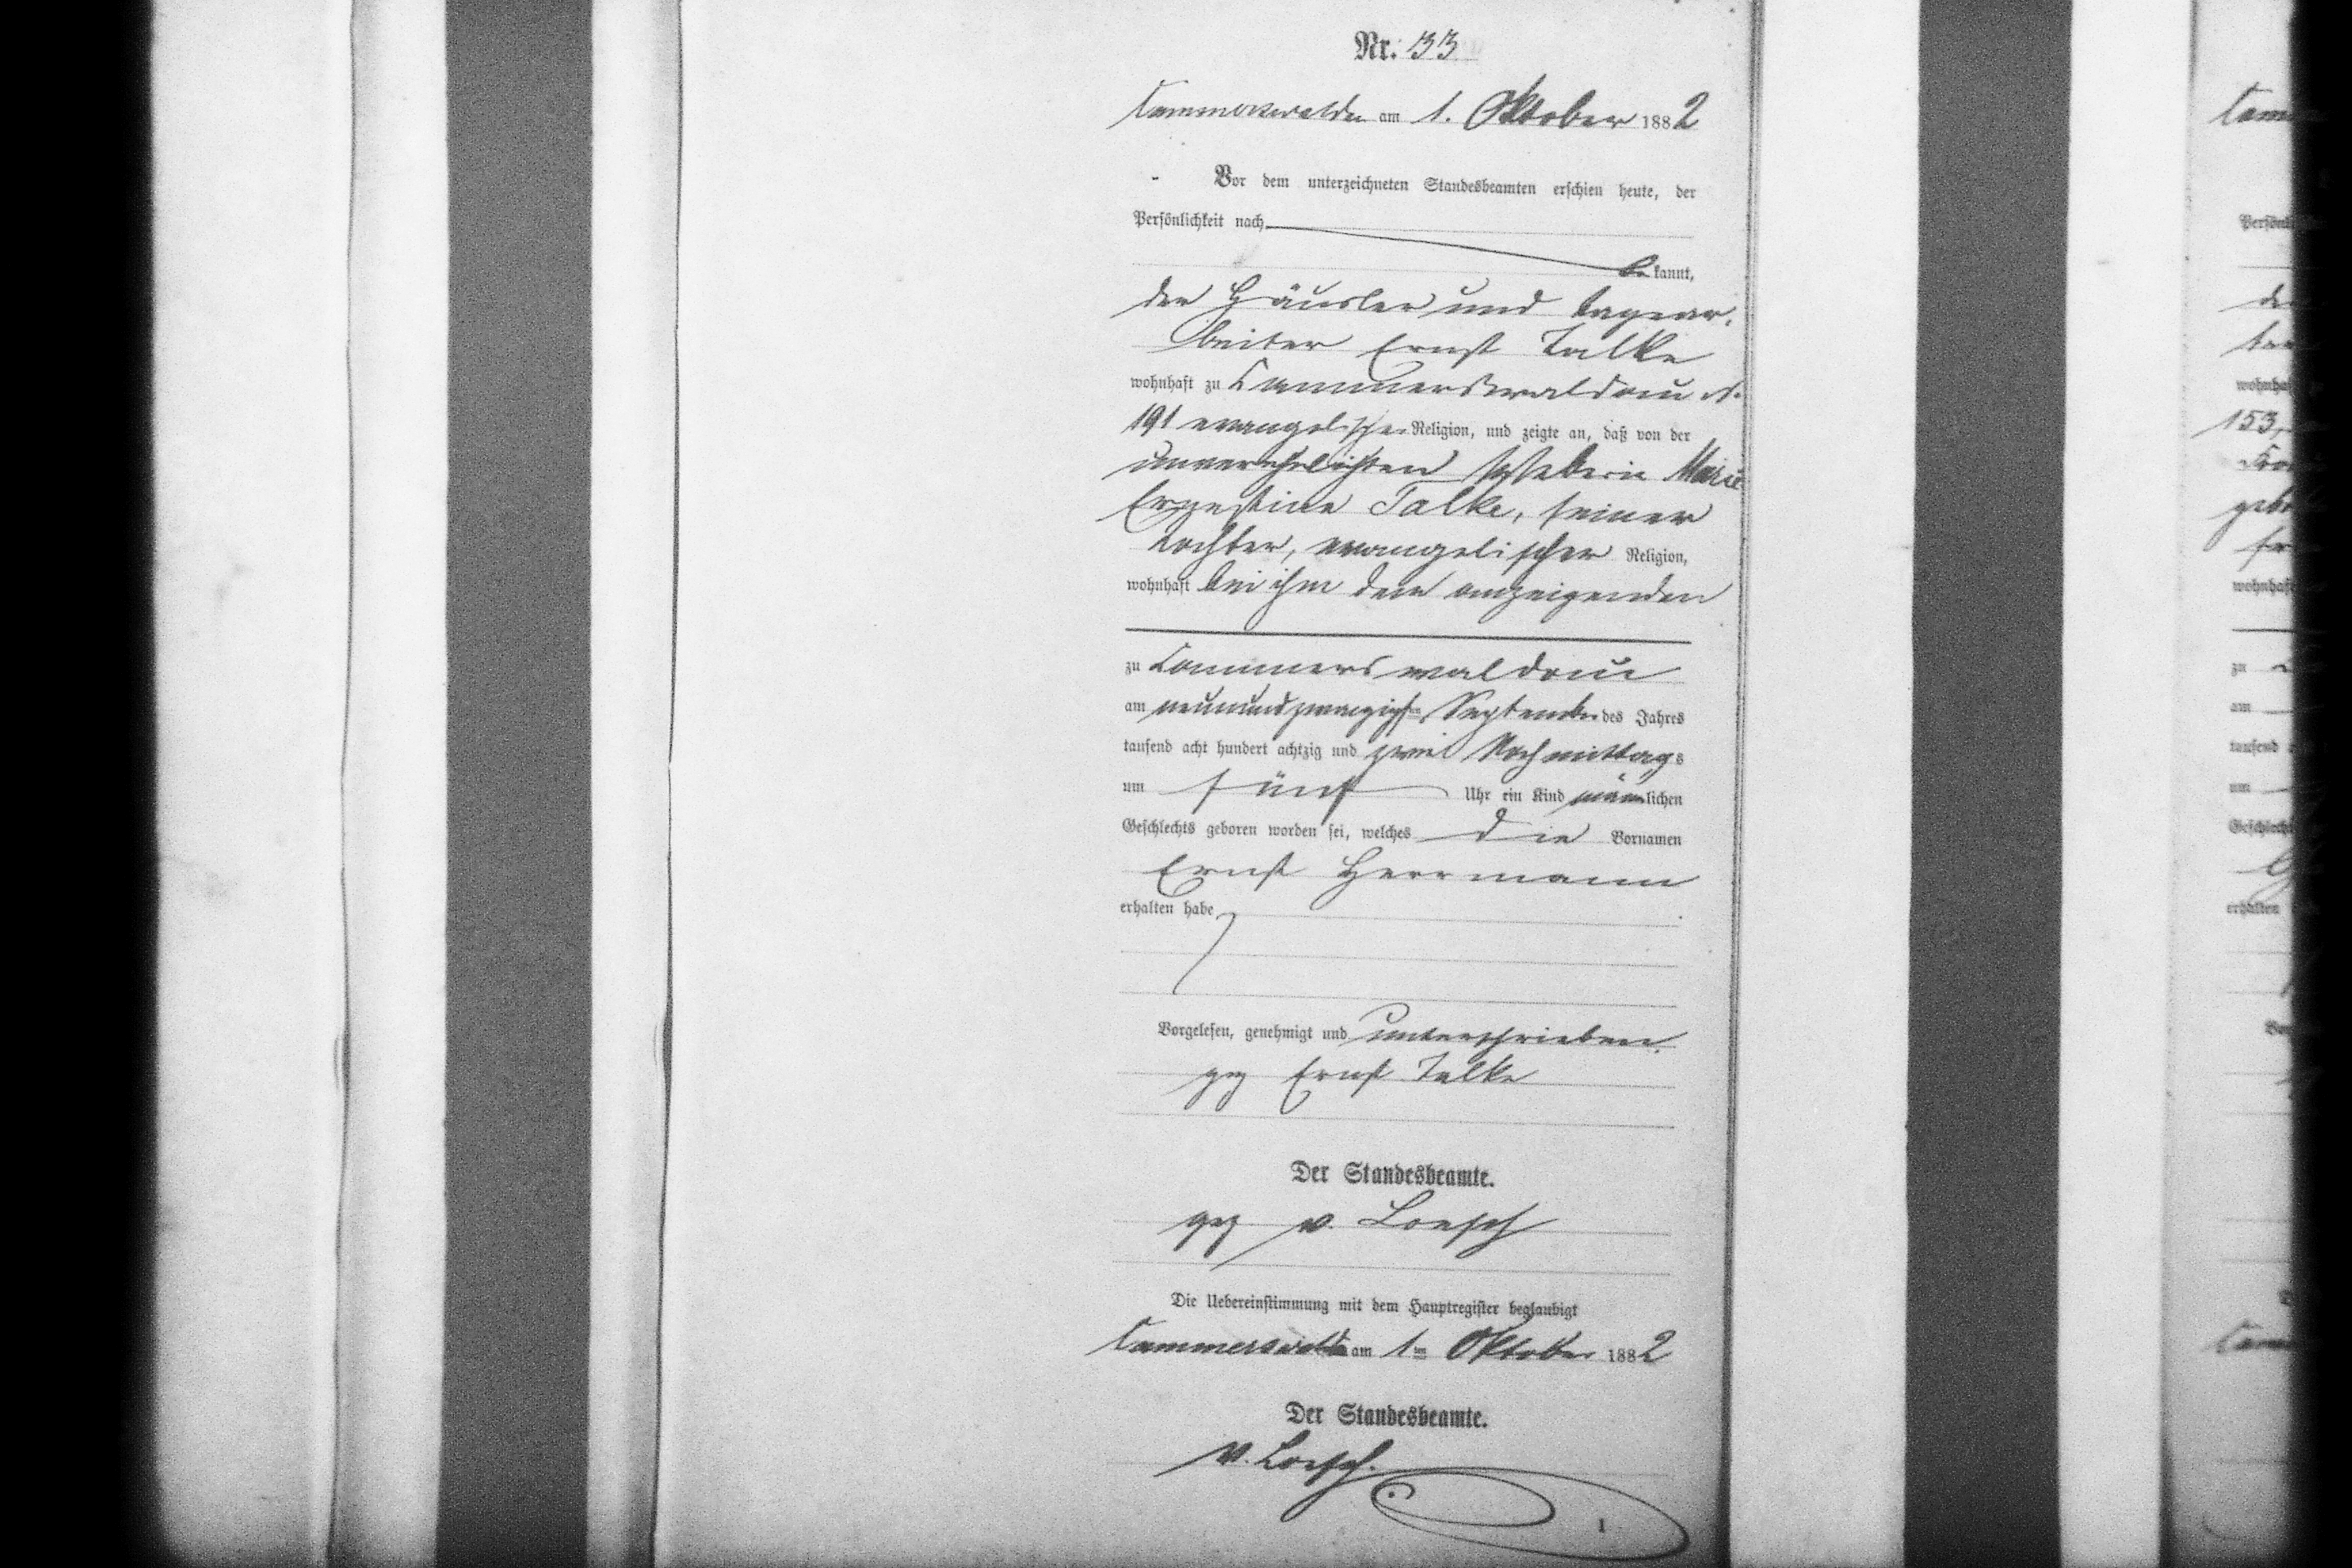 Nr. 33
Cammerswaldau am 1. Oktober 1882
Vor dem unterzeichneten Standesbeamten erschien heute, der
Persönlichkeit nach
be kannt,
der Häusler und Tagear-
beiter Ernst Talke
wohnhaft zu Cammerswaldau N.
191 evangelischer Religion, und zeigte an, daß von der
unverehelichten Marie
Ernestine Talke, seiner
Tochter, evangelischer Religion,
wohnhaft bei ihm dem anzeigenden
zu Cammerswaldau
am neunundzwanzigsten September des Jahres
tausend acht hundert achtzig und zwei Nachmittags
um fünf Uhr ein Kind männlichen
Geschlechts geboren worden sei, welches die Vornamen
Ernst Herrmann
erhalten habe
Vorgelesen, genehmigt und unterschrieben.
gez Ernst Talke
Der Standesbeamte.
gez v. Loesch
Die Uebereinstimmung mit dem Hauptregister beglaubigt
Cammerswaldau am 1ten Oktober 1882
Der Standesbeamte.
v. Loesch.
1
Cam
Persönl
de
wohnha
153,
geb
wohnhaf
zu
am
tausend
um
Geschlech
erhalten
Vor
D
Cam